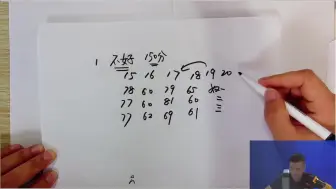 1 不好 150分
15 16 17 18 19 20
78 60 79 65 初一
77 60 81 60 二
77 62 69 61 三